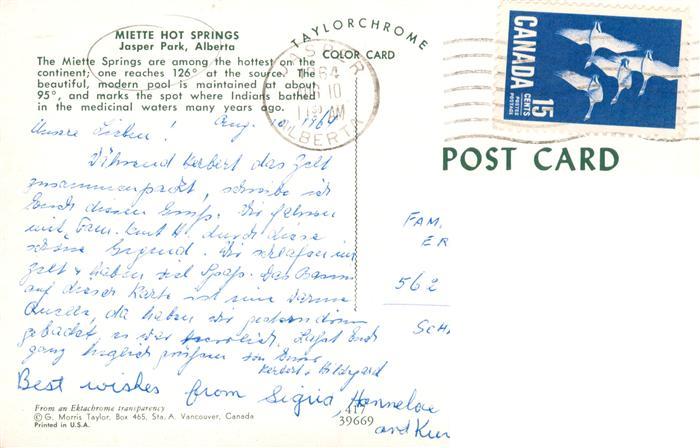 MIETTE HOT SPRINGS
Jasper Park, Alberta
The Miette Springs are among the hottest on the
continent; one reaches 126° at the source. The
beautiful, modern pool is maintained at about
95°, and marks the spot where Indians bathed
in the medicinal waters many years ago.
TAYLORCHROME
COLOR CARD
JASPER
1964
10
AM
ALBERTA
CANADA
15
CENTS
POSTES
POSTAGE
POST CARD
Unsre Lieben! Aug. 10. 1964
Während Herbert das Zelt
zusammenpackt, schreibe ich
Euch diesen Gruß. Wir fahren
mit Fam. Kurt H. durch diese
schöne Gegend. Wir schlafen im
Zelt & haben viel Spaß. Das Bassin
auf dieser Karte ist eine warme
Quelle, da haben wir gestern drin
gebadet, es war herrlich. Seid Euch
ganz herzlich von
Herbert & Hildegard
Best wishes from Sigrid, Hannelore
and Kur
FAM.
ER
562
SCH
From an Ektachrome transparency
© G. Morris Taylor, Box 465, Sta. A. Vancouver, Canada
Printed in U.S.A.
417
39669